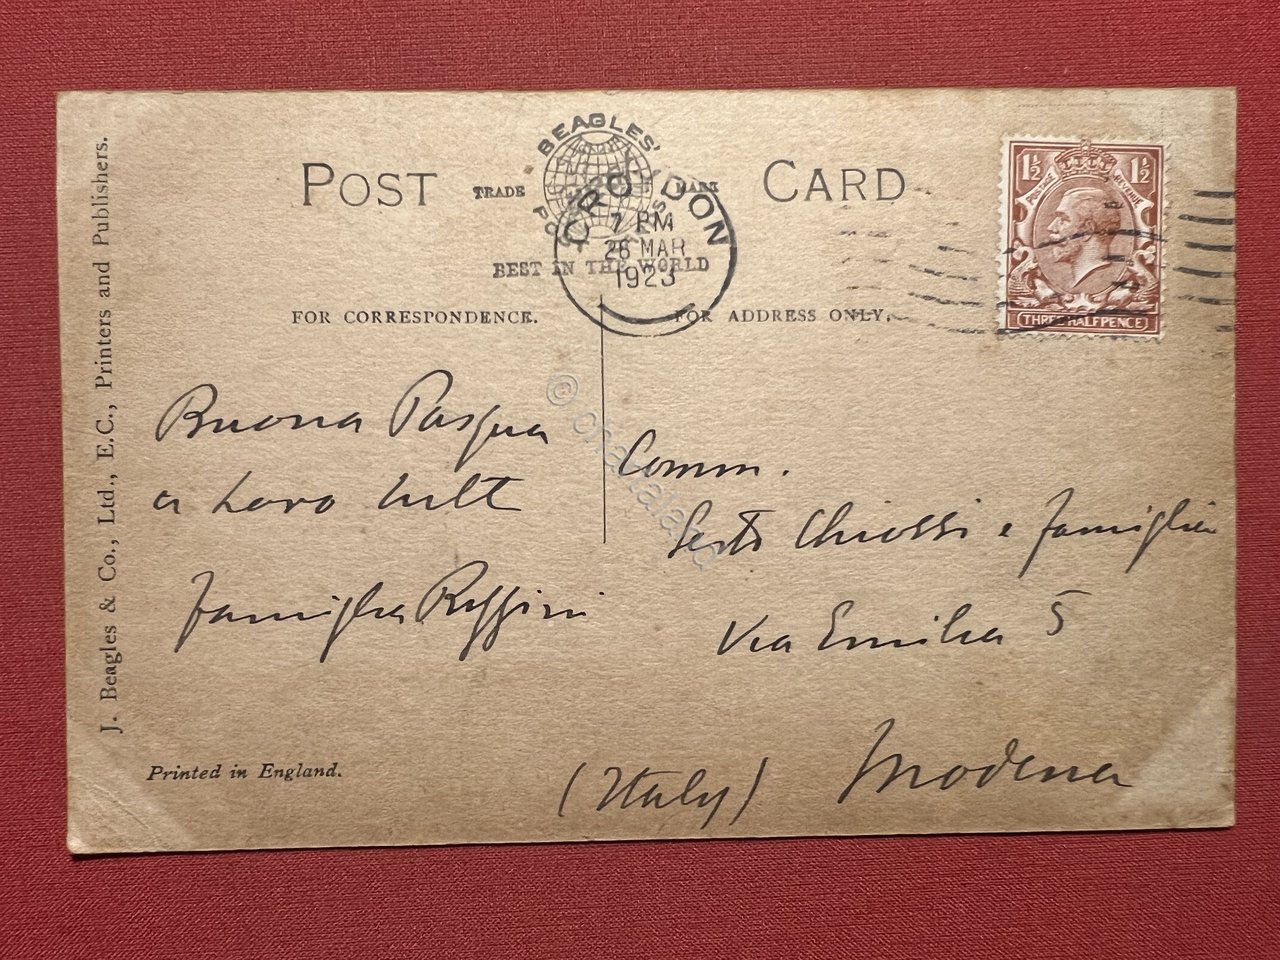 J. Beagles & Co., Ltd., E.C., Printers and Publishers.
POST CARD
BEAGLES'
TRADE MARK
POSTCARDS
BEST IN THE WORLD
CROYDON
7 PM
26 MAR
1923
1½ 1½
POSTAGE REVENUE
THREE HALFPENCE
FOR CORRESPONDENCE.
FOR ADDRESS ONLY.
Buona Pasqua
a Loro tutti
famiglia Ruffini
Comm.
Sesto Chiossi e famiglia
Via Emilia 5
Modena
(Italy)
Printed in England.